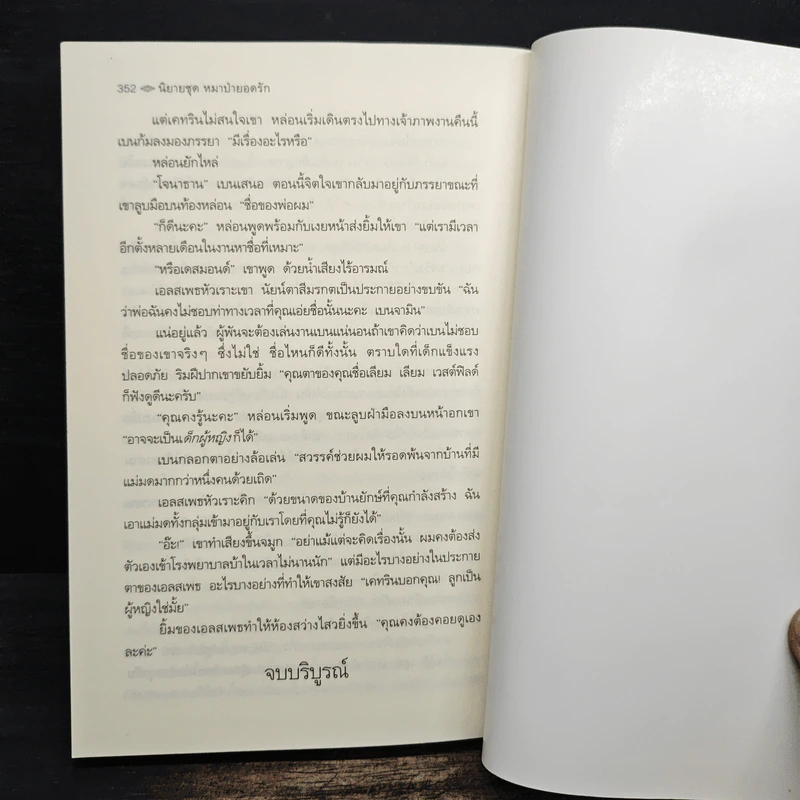 352 นิยายชุด หมาป่ายอดรัก
แต่เคทรินไม่สนใจเขา หล่อนเริ่มเดินตรงไปทางเจ้าภาพงานคืนนี้
เบนก้มลงมองภรรยา “มีเรื่องอะไรหรือ”
หล่อนยักไหล่
“โจนาธาน” เบนเสนอ ตอนนี้จิตใจเขากลับมาอยู่กับภรรยาขณะที่
เขาลูบมือบนท้องหล่อน “ชื่อของพ่อผม”
“ก็ดีนะคะ” หล่อนพูดพร้อมกับเงยหน้าส่งยิ้มให้เขา “แต่เรามีเวลา
อีกตั้งหลายเดือนในงานหาชื่อที่เหมาะ”
“หรือเดสมอนด์” เขาพูด ด้วยน้ำเสียงไร้อารมณ์
เอลสเพธหัวเราะเขา นัยน์ตาสีมรกตเป็นประกายอย่างขบขัน “ฉัน
ว่าพ่อฉันคงไม่ชอบท่าทางเวลาที่คุณเอ่ยชื่อนั้นนะคะ เบนจามิน”
แน่อยู่แล้ว ผู้พันจะต้องเล่นงานเบนแน่นอนถ้าเขาคิดว่าเบนไม่ชอบ
ชื่อของเขาจริงๆ ซึ่งไม่ใช่ ชื่อไหนก็ดีทั้งนั้น ตราบใดที่เด็กแข็งแรง
ปลอดภัย ริมฝีปากเขาขยับยิ้ม “คุณตาของคุณชื่อเลียม เลียม เวสต์ฟิลด์
ก็ฟังดูดีนะครับ”
“คุณคงรู้นะคะ” หล่อนเริ่มพูด ขณะลูบฝ่ามือลงบนหน้าอกเขา
“อาจจะเป็นเด็กผู้หญิงก็ได้”
เบนกลอกตาอย่างล้อเล่น “สวรรค์ช่วยผมให้รอดพ้นจากบ้านที่มี
แม่มดมากกว่าหนึ่งคนด้วยเถิด”
เอลสเพธหัวเราะคิก “ด้วยขนาดของบ้านยักษ์ที่คุณกำลังสร้าง ฉัน
เอาแม่มดทั้งกลุ่มเข้ามาอยู่กับเราโดยที่คุณไม่รู้ก็ยังได้”
“อ๊ะ!” เขาทำเสียงขึ้นจมูก “อย่าแม้แต่จะคิดเรื่องนั้น ผมคงต้องส่ง
ตัวเองเข้าโรงพยาบาลบ้าในเวลาไม่นานนัก” แต่มีอะไรบางอย่างในประกาย
ตาของเอลสเพธ อะไรบางอย่างที่ทำให้เขาสงสัย “เคทรินบอกคุณ! ลูกเป็น
ผู้หญิงใช่มั้ย”
ยิ้มของเอลสเพธทำให้ห้องสว่างไสวยิ่งขึ้น “คุณคงต้องคอยดูเอง
ละค่ะ”
จบบริบูรณ์